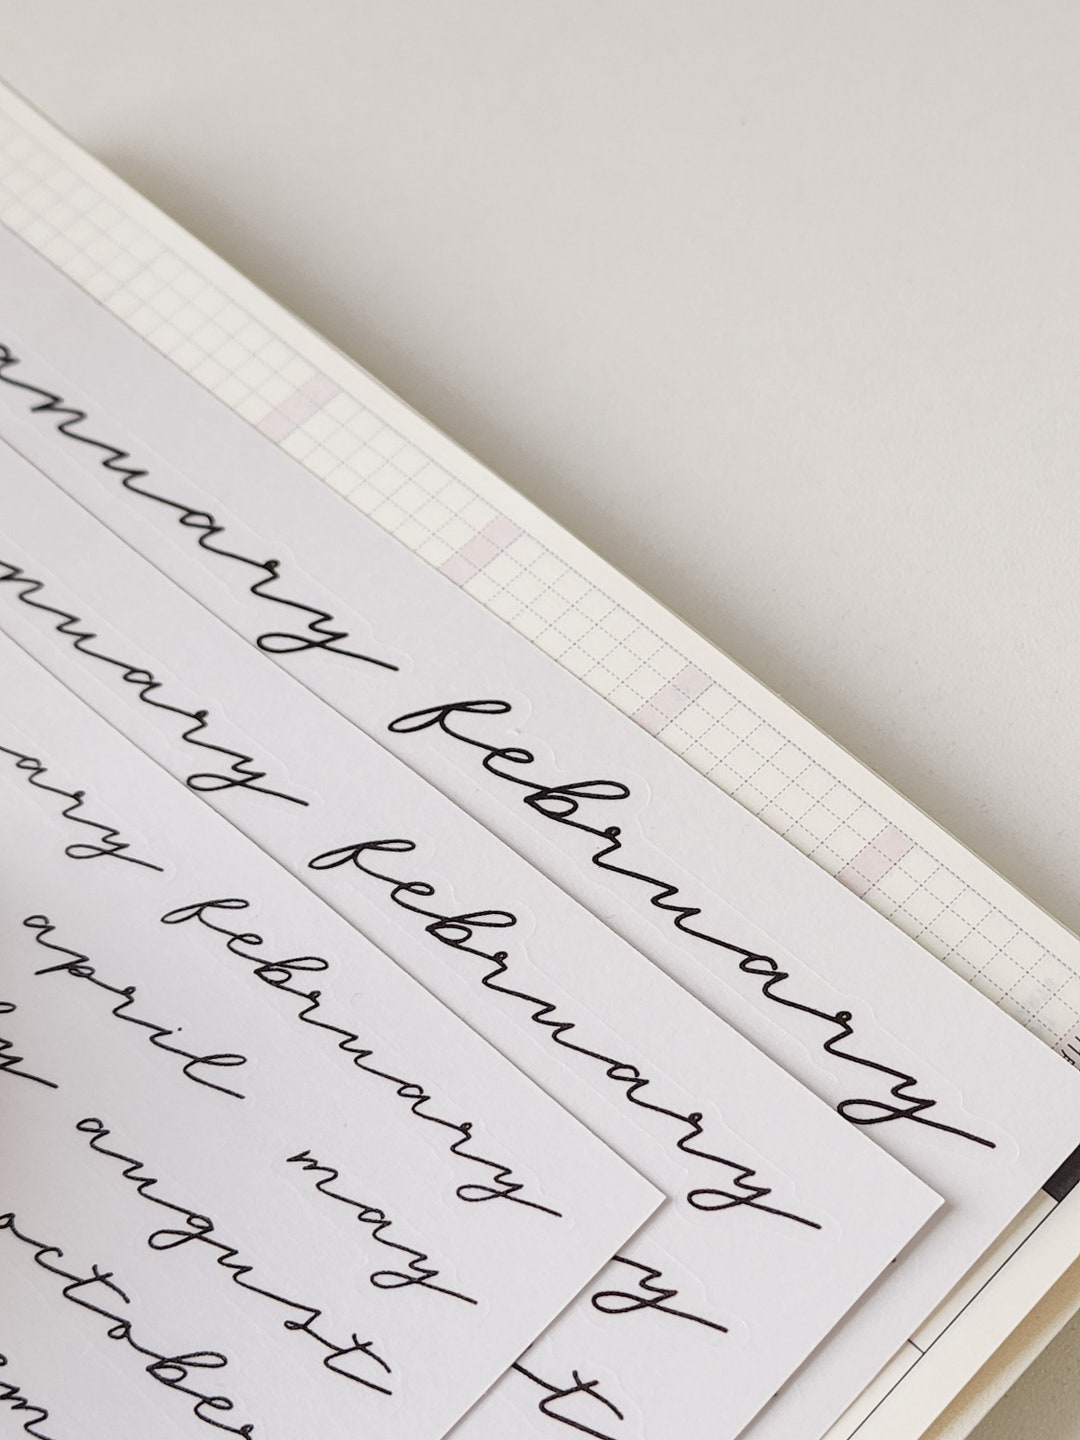 anuary february
nuary february
ary february
april may
august
october